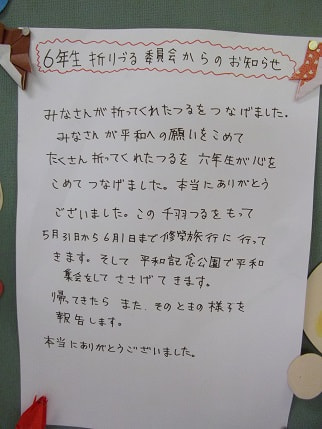 6年生 折りづる 委員会 からの お知らせ
みなさんが 折ってくれた つるを つなげました。
みなさんが 平和への 願いを こめて
たくさん 折ってくれた つるを 六年生が 心を
こめて つなげました。本当に ありがとう
ございました。この 千羽つるを もって
5月31日から 6月1日まで 修学旅行に 行って
きます。そして 平和記念公園で 平和
集会をして ささげて きます。
帰ってきたら また、そのときの 様子を
報告します。
本当にありがとうございました。